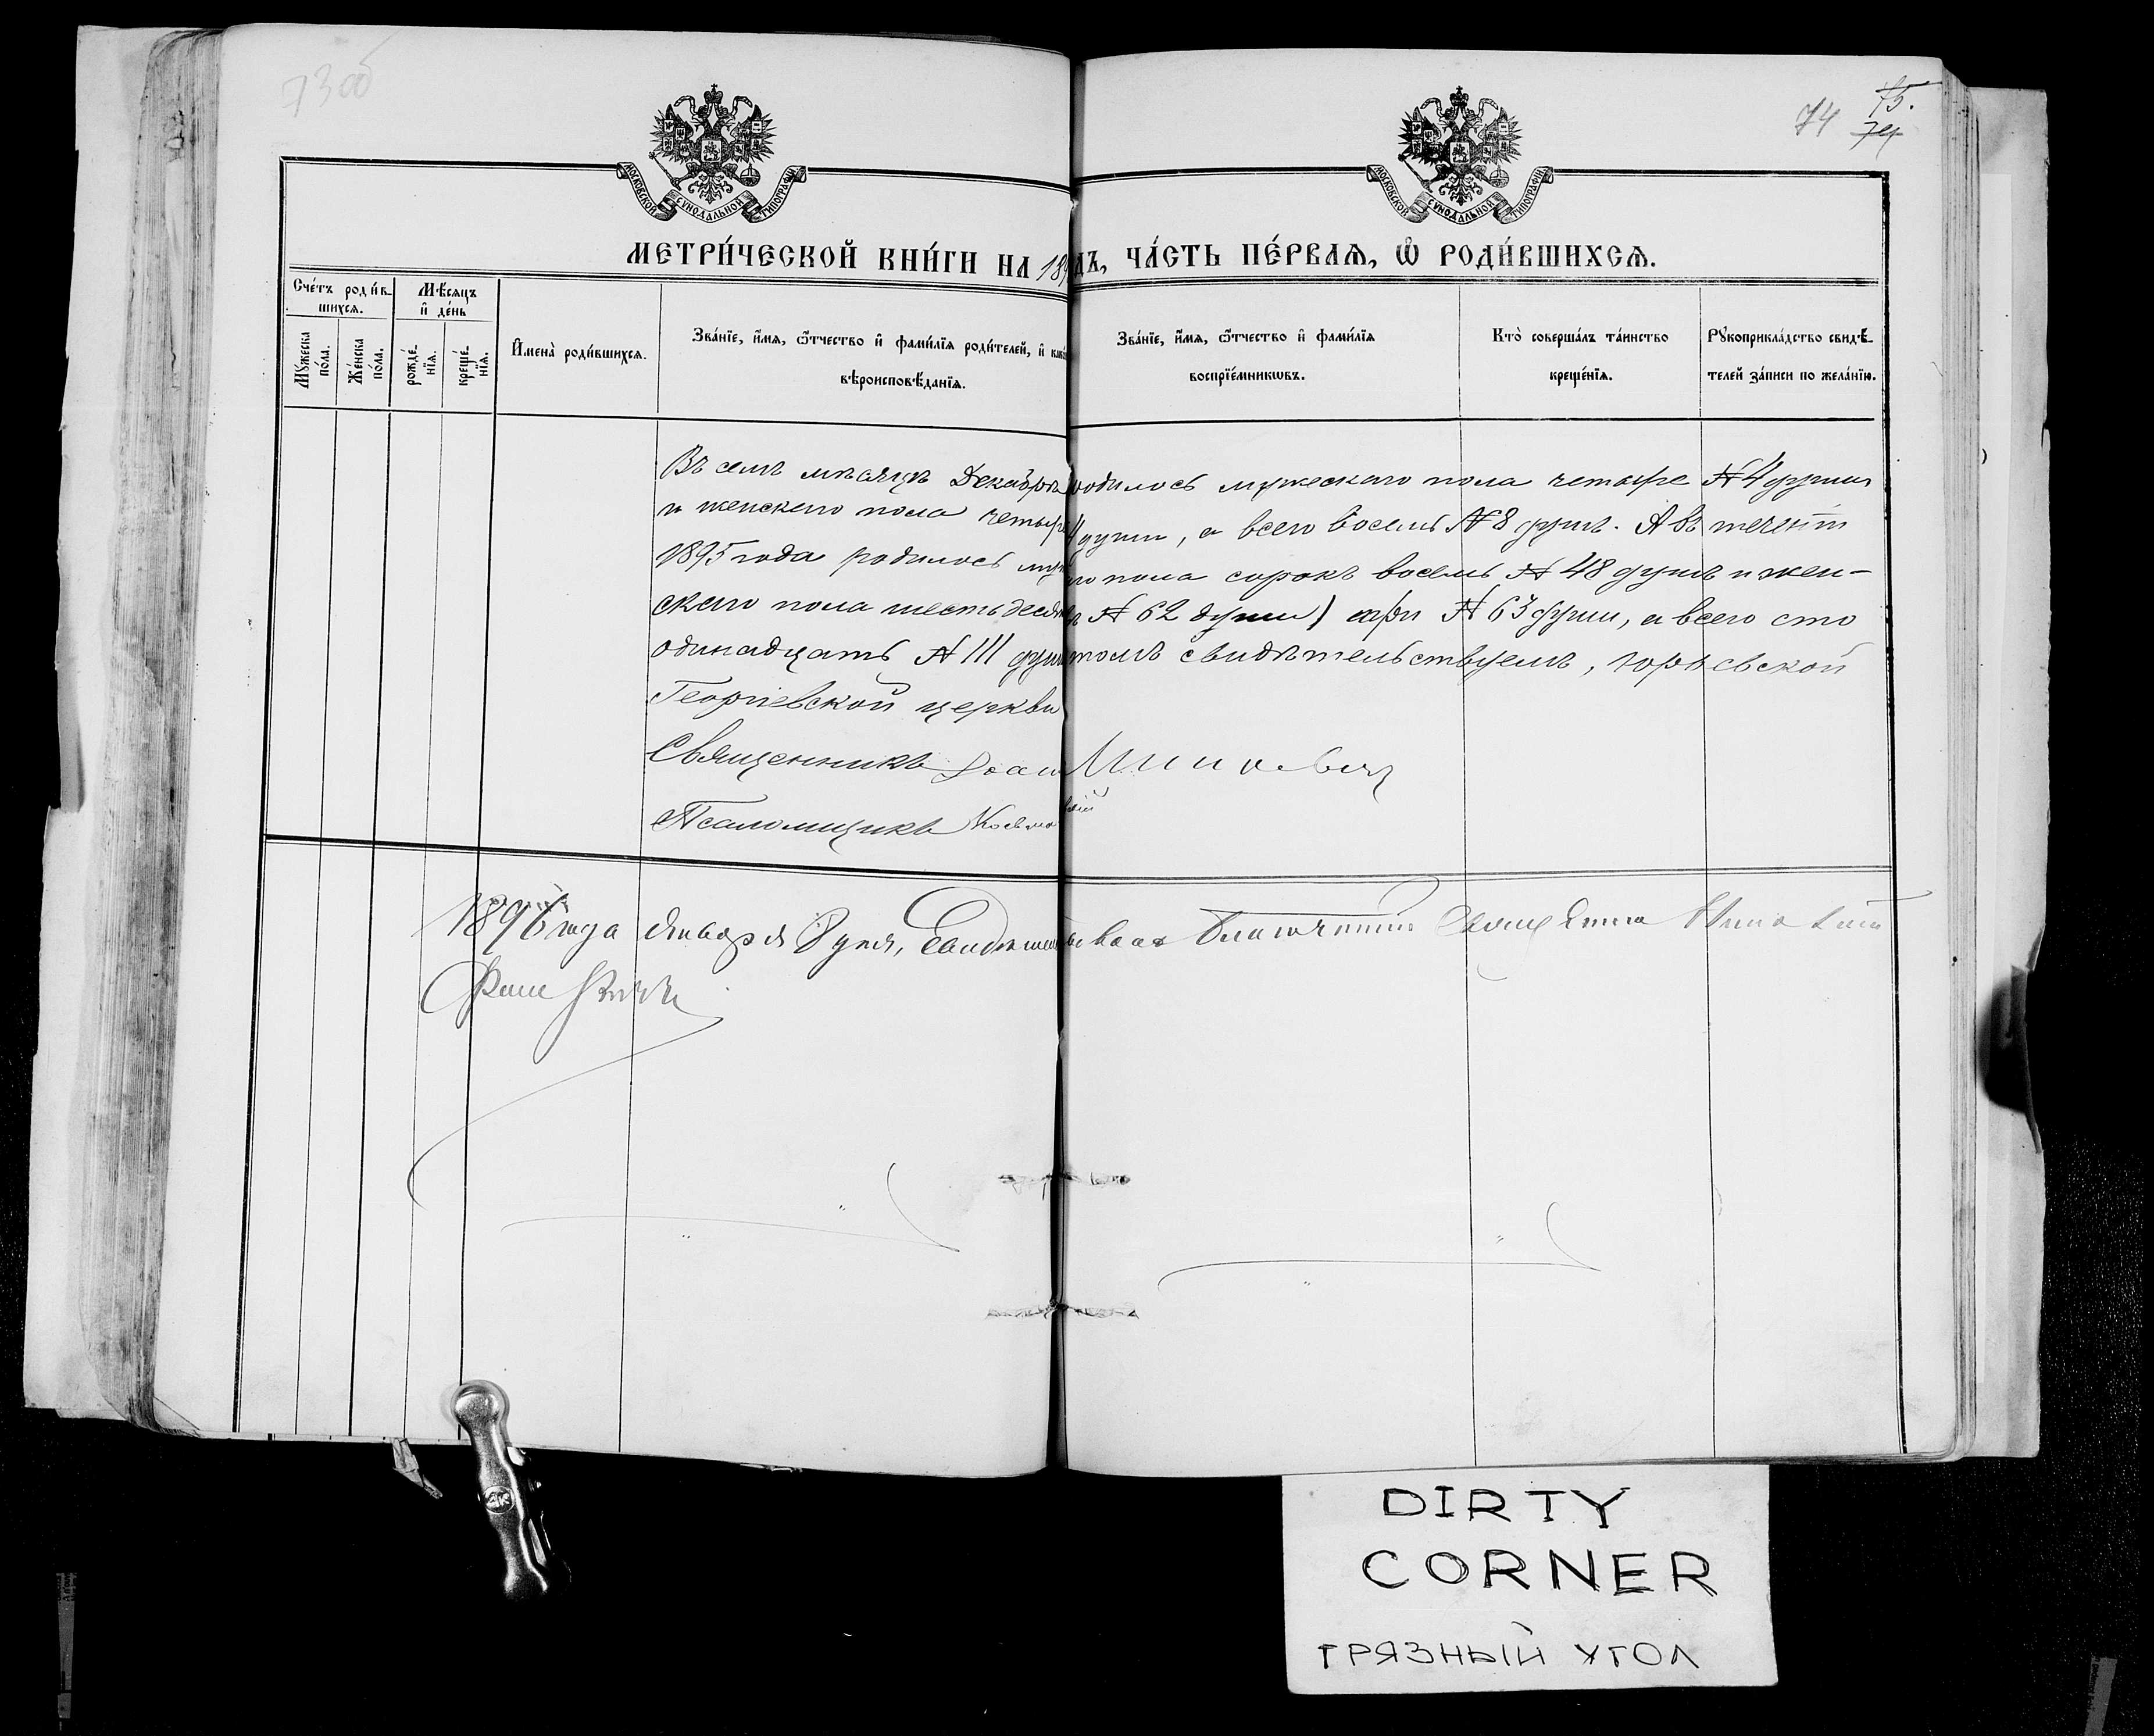 73об
74 75. 74
МОСКОВСКОЙ СѴНОДАЛЬНОЙ ТИПОГРАФІИ
МОСКОВСКОЙ СѴНОДАЛЬНОЙ ТИПОГРАФІИ
МЕТРИ́ЧЕСКОЙ КНИ́ГИ НА 18 ДЪ, ЧА́СТЬ ПЕ́РВАѦ, Ѿ РОДИ́ВШИХСѦ.
Сче́тъ роди́в-
шихсѧ.
Мѣ́сяцъ
и҆ де́нь
Мꙋ́жеска
по́ла.
Же́нска
по́ла.
рожде́-
нїѧ.
креще́-
нїѧ.
И҆мена̀ роди́вшихсѧ.
Зва́нїе, и҆́мѧ, ѻ҆́тчество и҆ фами́лїѧ роди́телей, и҆
вѣроисповѣ́данїѧ.
Зва́нїе, и҆́мѧ, ѻ҆́тчество и҆ фами́лїѧ
воспрїе́мникѡвъ.
Кто̀ соверша́лъ та́инство
креще́нїѧ.
Рꙋкоприкла́дство свидѣ́-
телей за́писи по жела́нїю.
Въ семъ мѣсяцѣ Декабрѣ родилось мужескаго пола четыре № 4 души
и женскаго пола четыре души, а всего восемь № 8 душъ. А въ теченіи
1895 года родилось муж го пола сорокъ восемь № 48 душъ и жен-
скаго пола шестьдесят № 62 души) три № 63 души, а всего сто
одинадцать № 111 душ томъ свидѣтельствуемъ, Юрьевской
Георгіевской церкви
Священникъ Іоан
Псаломщикъ Косьма
1896 года Января 8 дня, Свидѣтельствовал Благочинный Свящ
DIRTY
CORNER
ГРЯЗНЫЙ УГОЛ